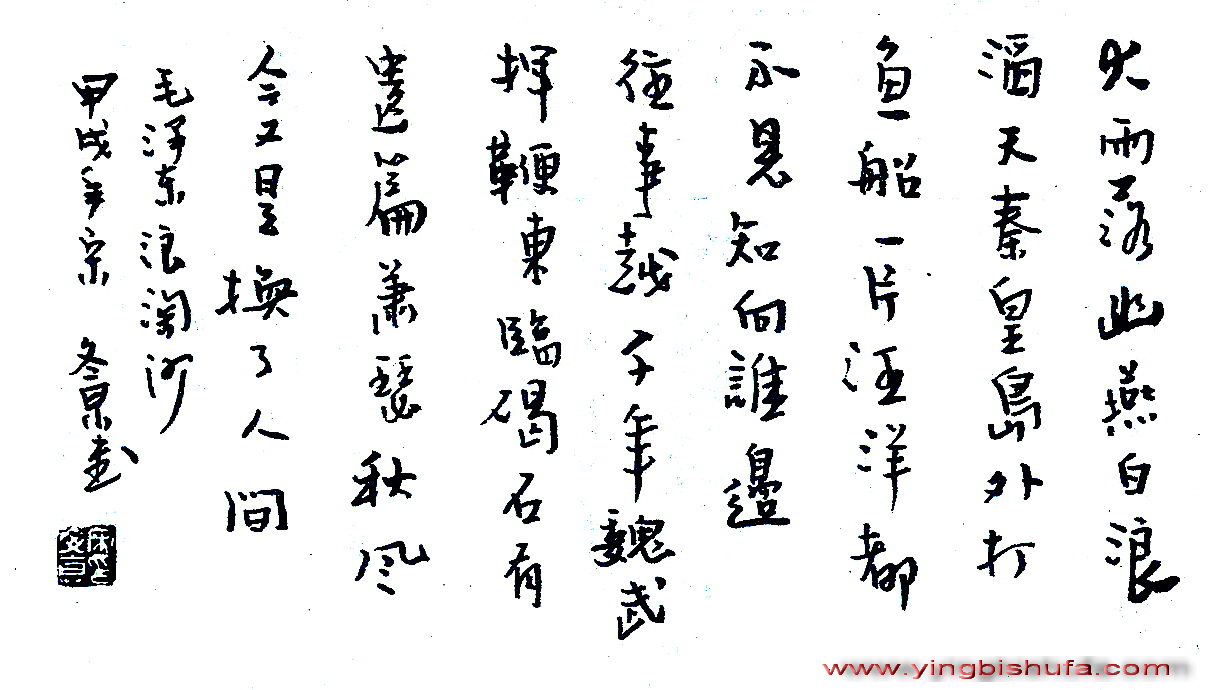 大雨落幽燕白浪
滔天秦皇島外打
鱼船一片汪洋都
不見知向誰邊
往事越千年魏武
揮鞭東臨碣石有
遺篇蕭瑟秋风
今又是換了人間
毛泽东浪淘沙
甲戌年
www.yingbishufa.com